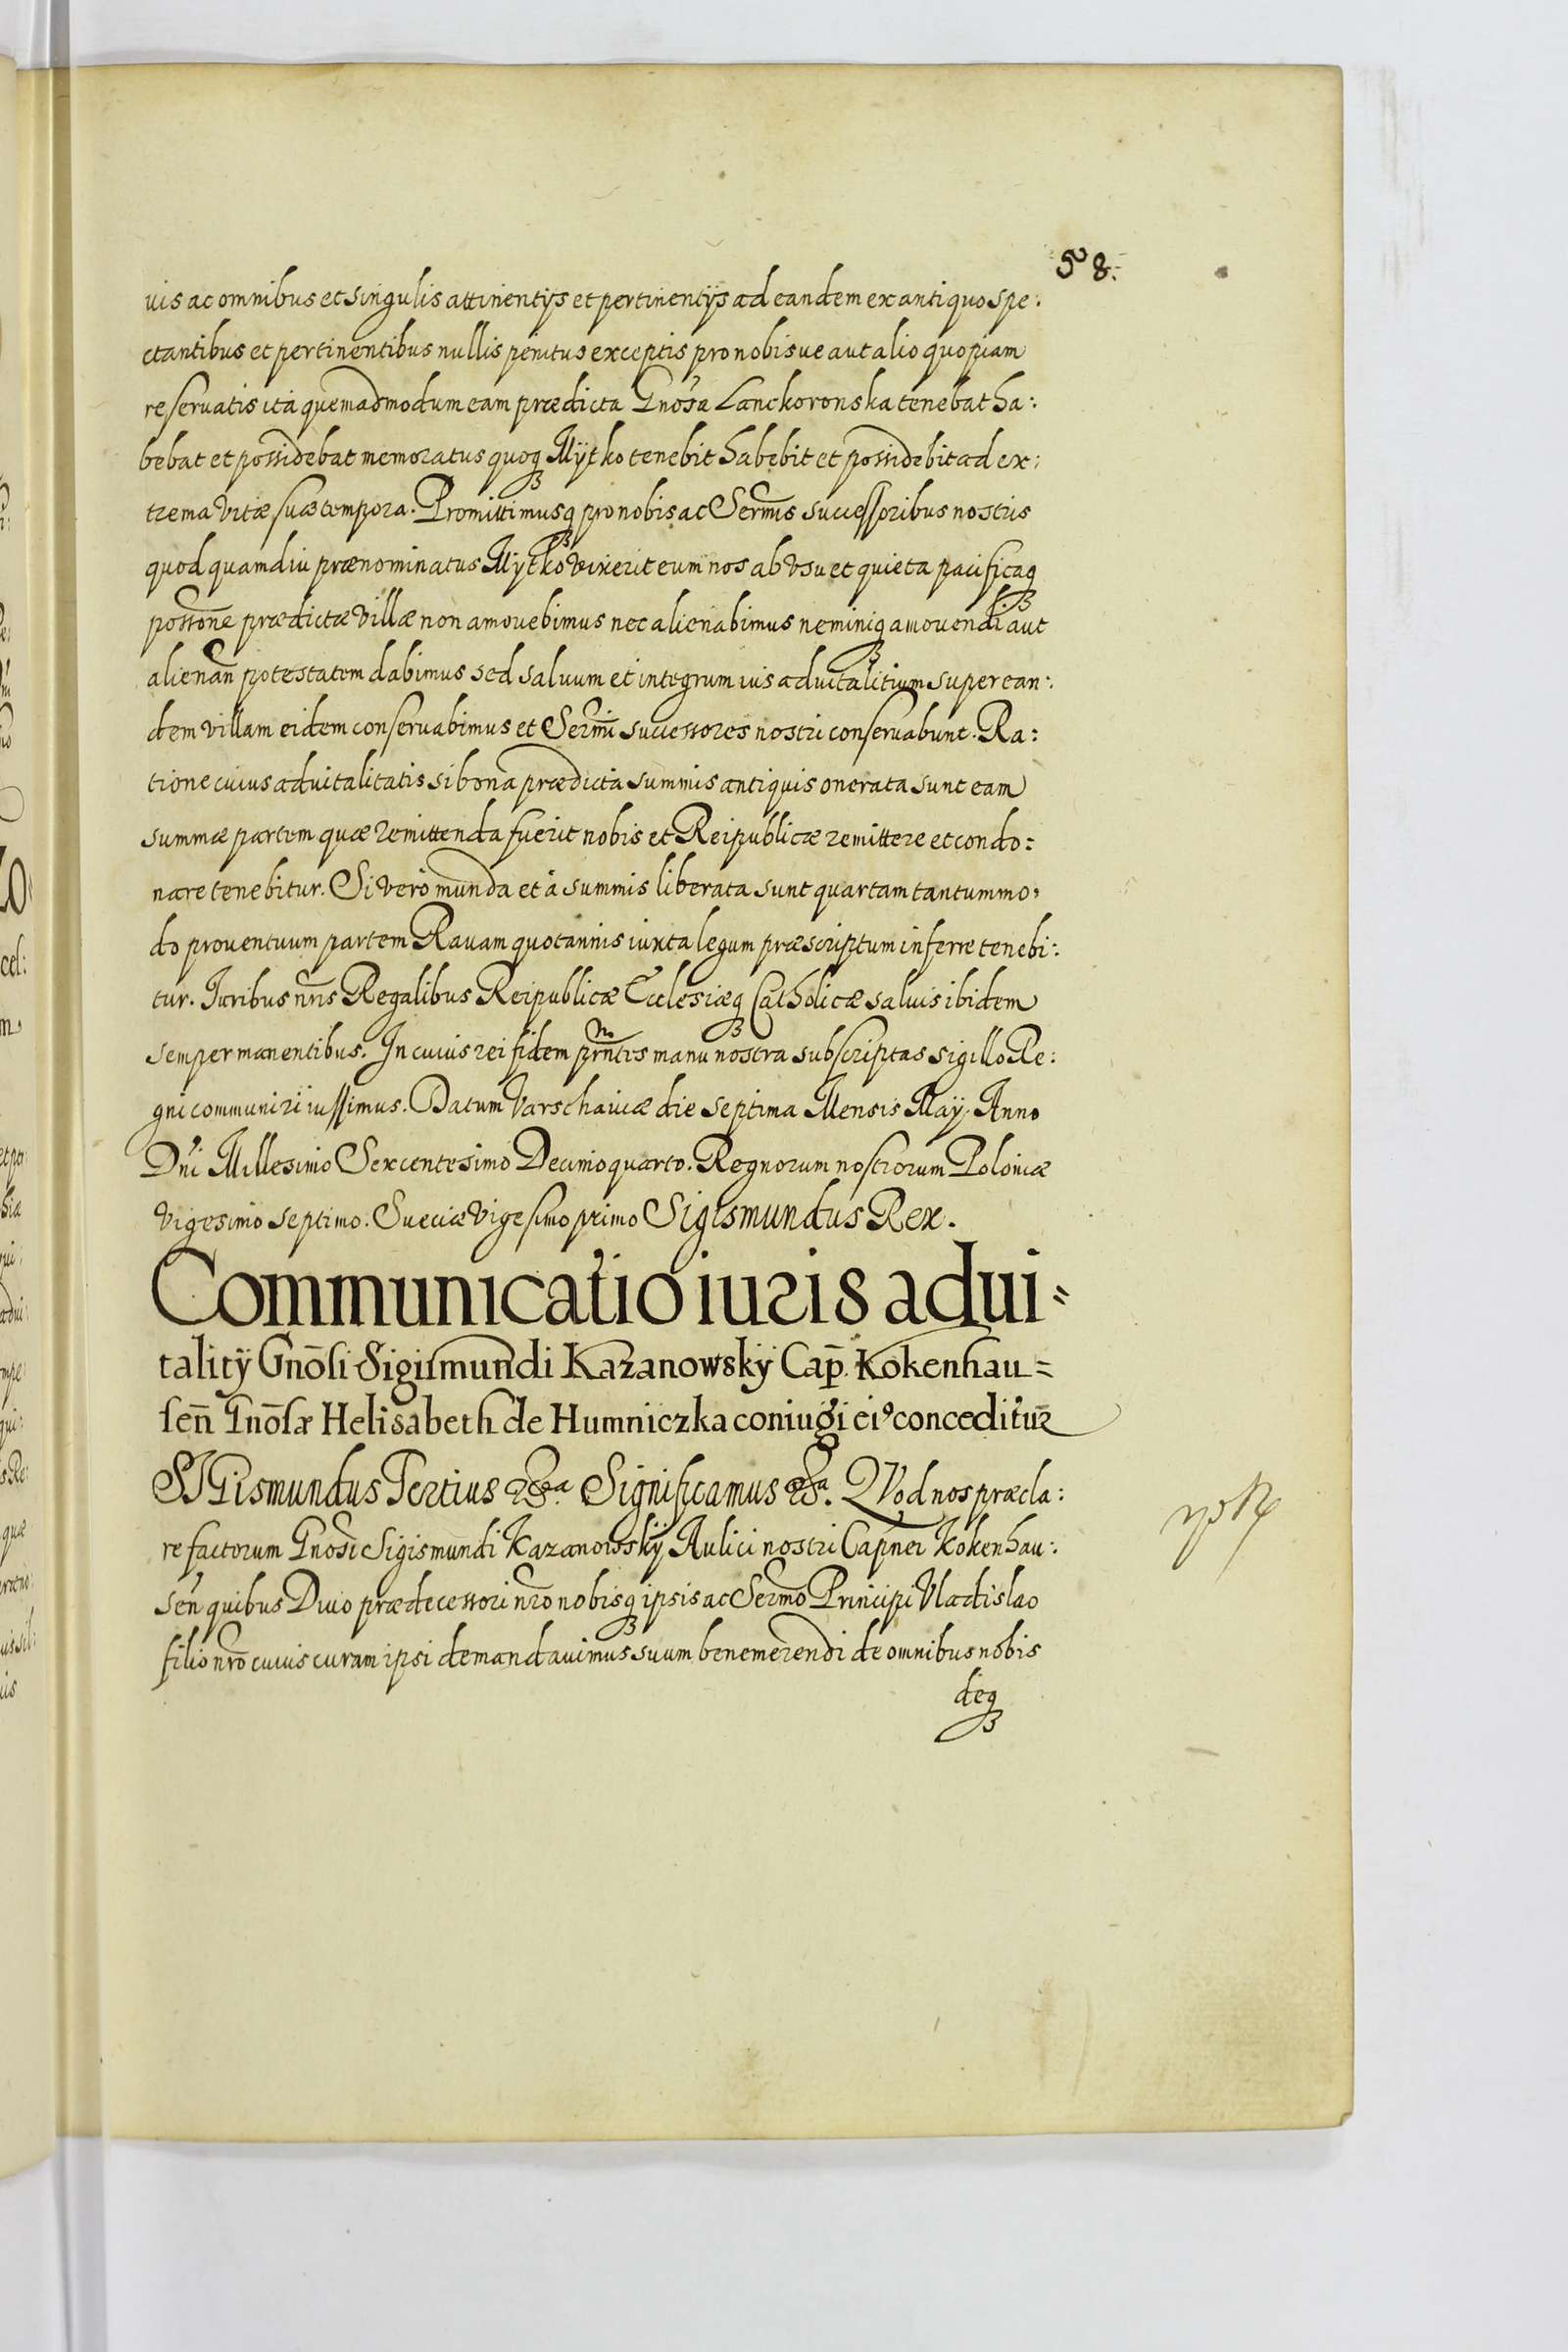 58.
uis ac omnibus et singulis attinentijs et pertinentijs ad eandem ex antiquo spe:
ctantibus et pertinentibus nullis penitus exceptis pro nobisue aut alio quopiam
reseruatis ita quemadmodum eam prædicta Gnosa Lanckoronska tenebat ha:
bebat et possidebat memoratus quoq Mytko tenebit habebit et possidebit ad ex:
trema vitæ suæ tempora. Promittimusq pro nobis ac Sermis successoribus nostris
quod quamdiu prænominatus Mytko vixerit eum nos ab vsu et quieta pacificaq
possone prædictæ villæ non amouebimus nec alienabimus neminiq amouendi aut
alienan potestatem dabimus sed saluum et integrum ius aduitalitium super ean:
dem villam eidem conseruabimus et Sermi successores nostri conseruabunt. Ra:
tione cuius aduitalitatis si bona prædicta summis antiquis onerata sunt eam
summæ partem quæ remittenda fuerit nobis et Reipublicæ remittere et condo:
nare tenebitur. Si verò munda et à summis liberata sunt quartam tantummo:
do prouentuum partem Rauam quotannis iuxta legum præscriptum inferre tenebi:
tur. Iuribus nris Regalibus Reipublicæ Ecclesiæq Catholicæ saluis ibidem
semper manentibus. In cuius rei fidem prntes manu nostra subscriptas sigillo Re:
gni communiri iussimus. Datum Varschauiæ die septima Mensis Maÿ. Anno
Dni Millesimo Sexcentesimo Decimoquarto. Regnorum nostrorum Poloniæ
Vigesimo septimo. Sueciæ Vigesimo primo Sigismundus Rex.
Communicatio iuris adui=
talitÿ Gnōsi Sigismundi Kazanowskÿ Cap̄. Kokenhau=
sen̄ Gnōsæ Helisabeth de Humniczka coniugi ei9 conceditur
SIGismundus Tertius &a Significamus &a. QVod nos præcla:
re factorum Gnosi Sigismundi Kazanowskÿ Aulici nostri Capnei Kokenhau:
sen quibus Diuo prædecessori nro nobisq ipsis ac Sermo Principi Vladislao
filio nro cuius curam ipsi demandauimus suum benemerendi de omnibus nobis
deq